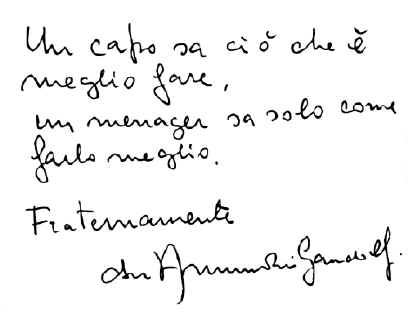 Un capo sa ciò che è
meglio fare,
un menager sa solo come
farlo meglio.
Fraternamente